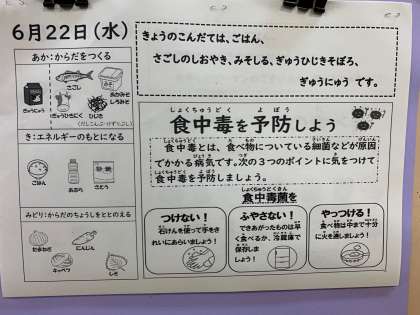 6月22日(水)
あか:からだをつくる
ぎゅうにゅう
さごし
みそ
あかみそ
しろみそ
ぎゅうひきにく
ひじき
き:エネルギーのもとになる
ごはん
あぶら
さとう
みどり:からだのちょうしをととのえる
たまねぎ
にんじん
キャベツ
しそ
きょうのこんだては、ごはん、
さごしのしおやき、みそしる、ぎゅうひじきそぼろ、
ぎゅうにゅう です。
しょくちゅうどく よぼう
食中毒を予防しよう
食中毒とは、食べ物についている細菌などが原因
でかかる病気です。次の3つのポイントに気をつけて
食中毒を予防しましょう。
しょくちゅうどくきん
食中毒菌を
つけない!
石けんを使って手をき
れいにあらいましょう!
ふやさない!
できあがったものは早
く食べるか、冷蔵庫で
保存しま
しょう!
やっつける!
食べ物は中まで十分
に火を通しましょう!